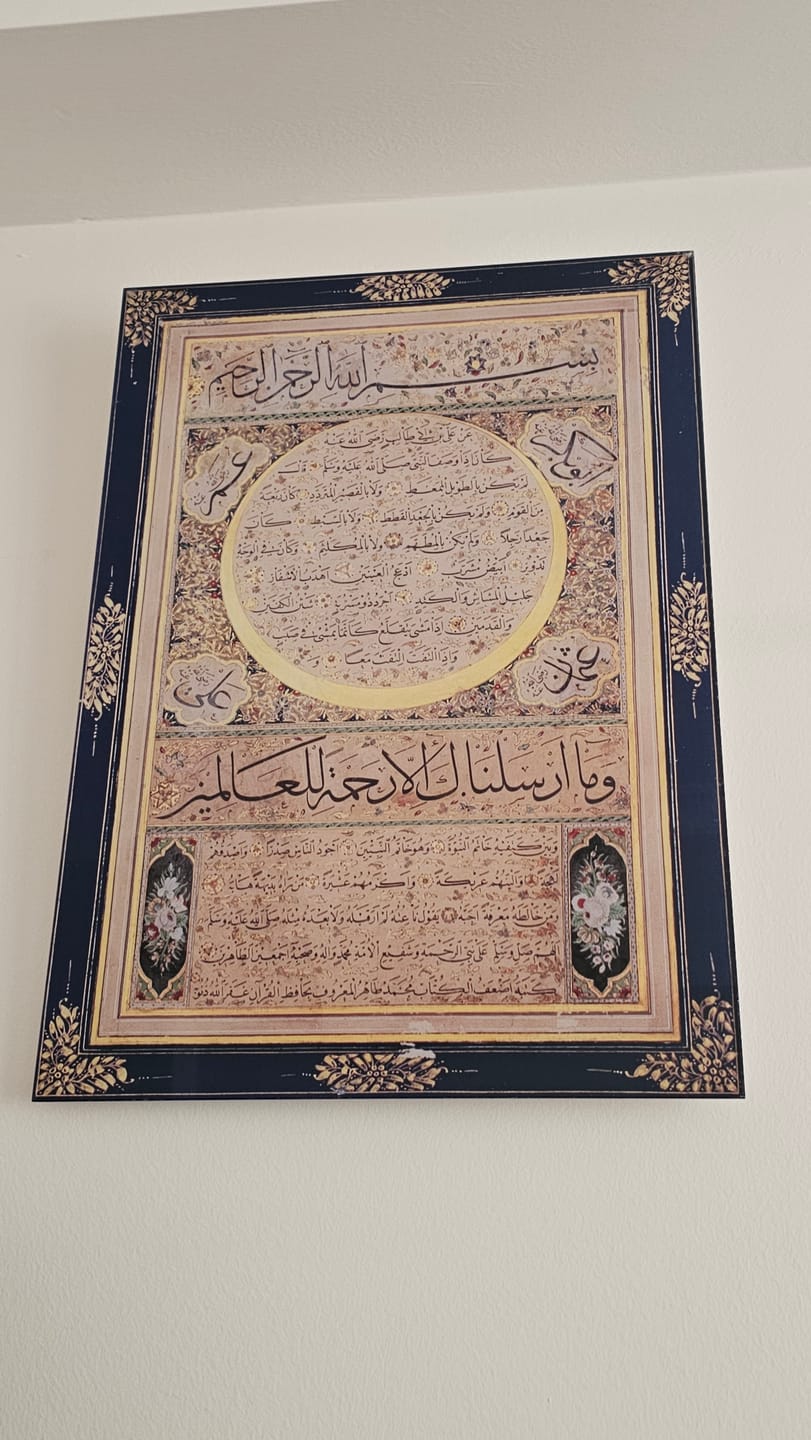 بسم الله الرحمن الرحيم
ابو بكر
عمر
عن علي بن ابي طالب رضي الله عنه
كان اذا وصف النبي صلى الله عليه وسلم قال
لم يكن بالطويل الممغط ولا بالقصير المتردد كان ربعة
من القوم ولم يكن بالجعد القطط ولا بالسبط كان
جعدا رجلا ولم يكن بالمطهم ولا بالمكلثم وكان في الوجه
تدوير ابيض مشرب ادعج العينين اهدب الاشفار
جليل المشاش والكتد اجرد ذو مسربة شثن الكفين
والقدمين اذا مشى يتقلع كانما يمشي في صبب
واذا التفت التفت معا و
عثمان
علي
وما ارسلناك الا رحمة للعالمين
وبين كتفيه خاتم النبوة وهو خاتم النبيين اجود الناس صدرا واصدقهم
لهجة والينهم عريكة واكرمهم عشيرة من رآه بديهة هابه
ومن خالطه معرفة احبه يقول ناعته لم ار قبله ولا بعده مثله صلى الله عليه وسلم
اللهم صل وسلم على نبي الرحمة وشفيع الامة محمد واله وصحبه اجمعين الطاهرين
كتبه اضعف الكتاب محمد طاهر المعروف بحافظ القرآن غفر الله ذنوبه